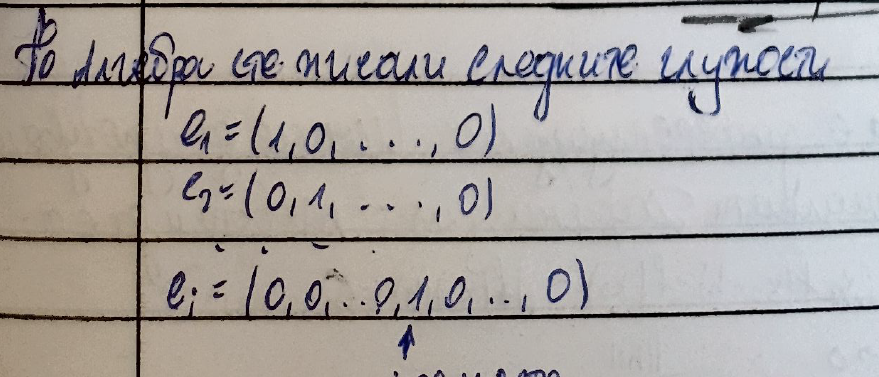 По Алгебра сте писали следните глупости
e₁ = (1, 0, . . . , 0)
e₂ = (0, 1, . . . , 0)
eᵢ = (0, 0, .. 0, 1, 0, . . , 0)
↑